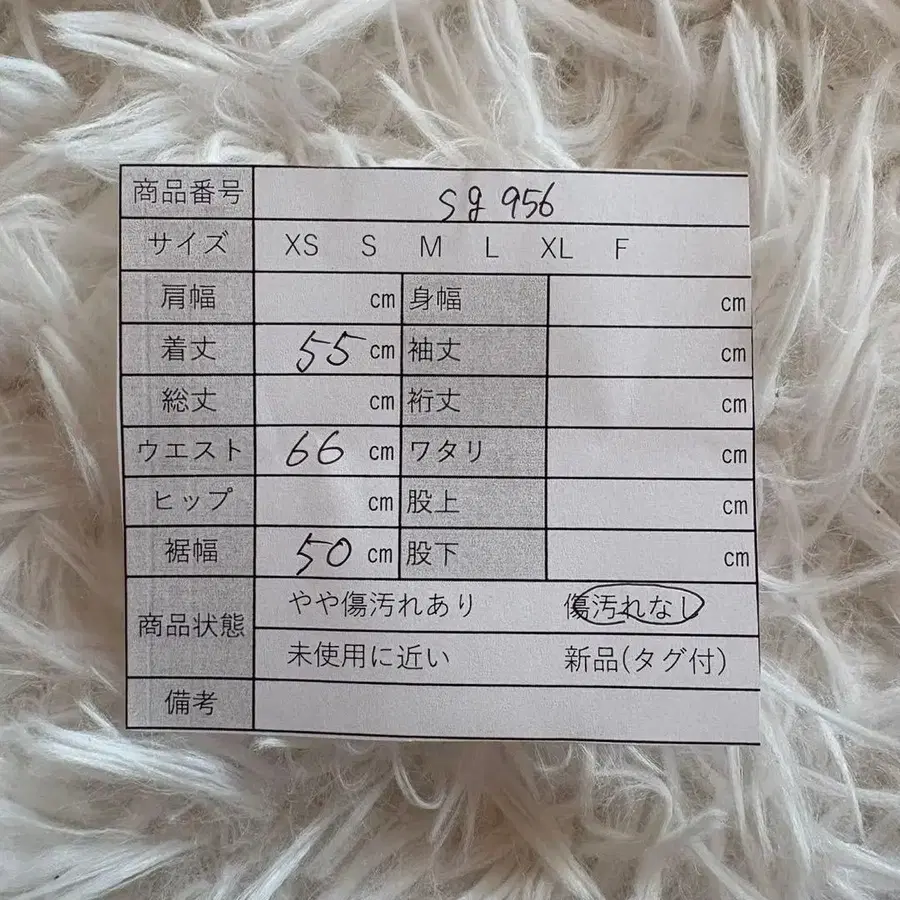 商品番号 sg 956
サイズ XS S M L XL F
肩幅 cm 身幅 cm
着丈 55 cm 袖丈 cm
総丈 cm 裄丈 cm
ウエスト 66 cm ワタリ cm
ヒップ cm 股上 cm
裾幅 50 cm 股下 cm
商品状態 やや傷汚れあり 傷汚れなし
未使用に近い 新品(タグ付)
備考